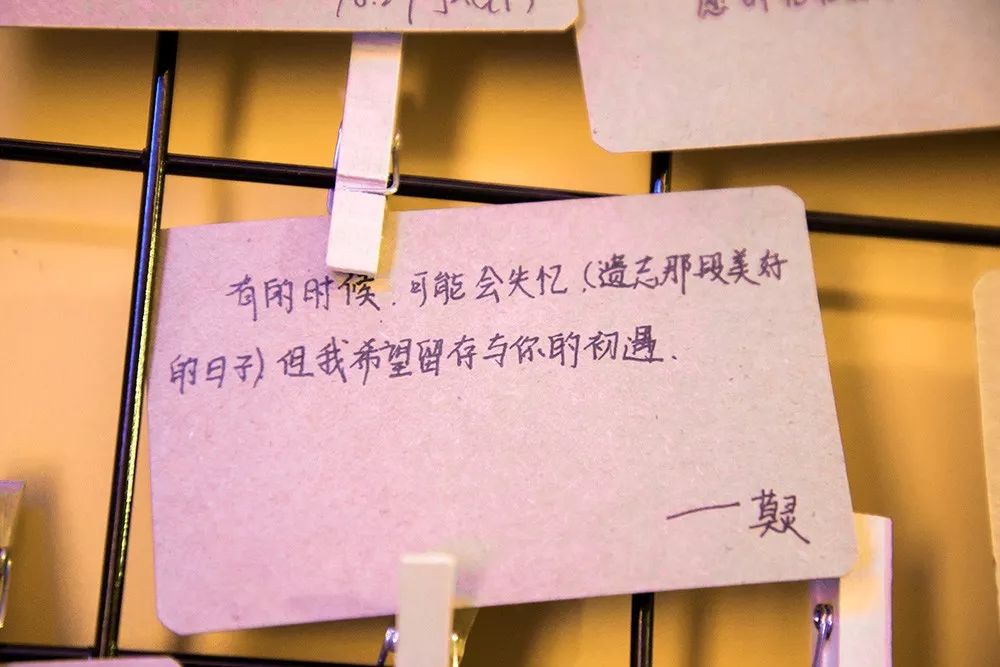 有的时候.可能会失忆.(遗志那段美好
的日子)但我希望留存与你的初遇.